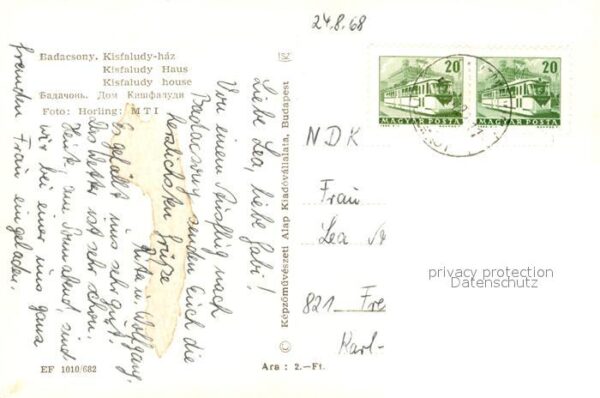 24.8.68
Badacsony. Kisfaludy-ház
Kisfaludy Haus
Kisfaludy house
Бадачонь. Дом Кишфалуди
Foto: Horling: MTI
Liebe Lea, liebe Gabi!
Von einem Ausflug nach
Badacsony senden Euch die
herzlichsten Grüße
Rita u. Wolfgang.
Es gefällt uns sehr gut.
Das Wetter ist sehr schön.
Heute, am Sonnabend, sind
wir bei einer uns ganz
fremden Frau eingeladen.
EF 1010/682
Ara : 2.—Ft.
© Képzőművészeti Alap Kiadóvállalata, Budapest
20
MAGYAR POSTA
20
MAGYAR POSTA
NDK
Frau
Lea
821 Fre
Karl-
privacy protection
Datenschutz